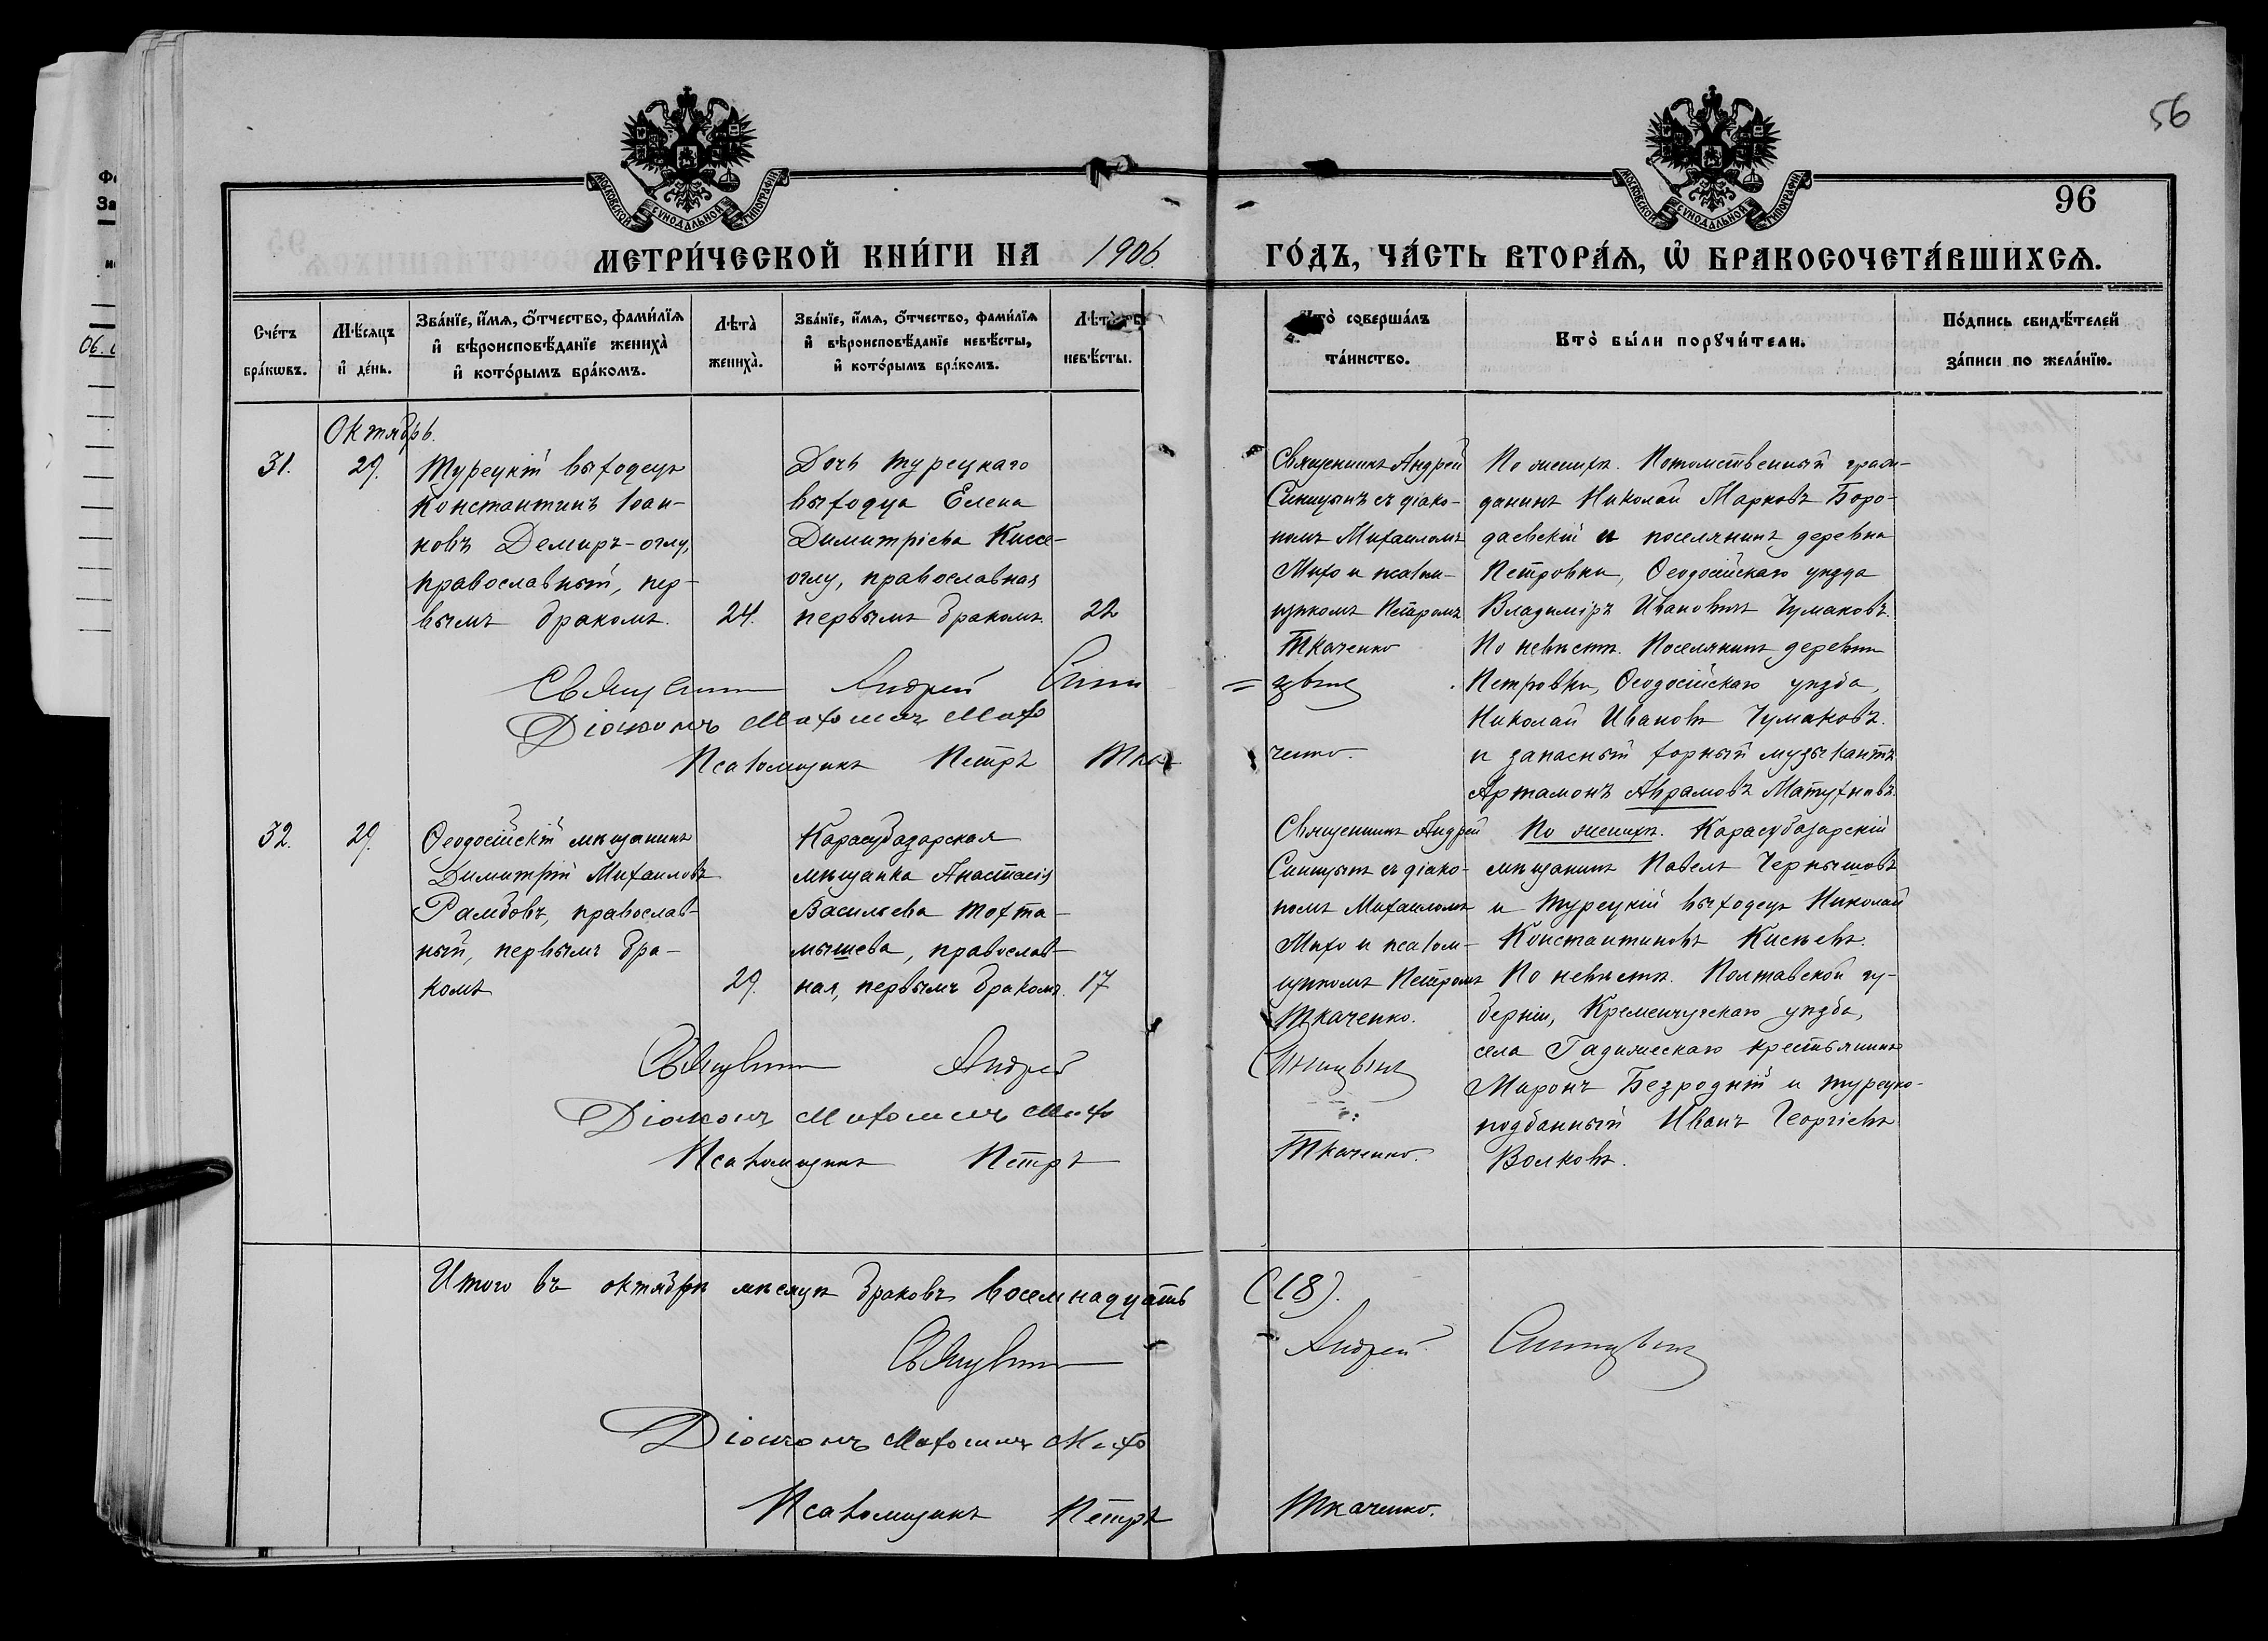 56
96
МОСКОВСКОЙ СѴНОДАЛЬНОЙ ТИПОГРАФІИ
МОСКОВСКОЙ СѴНОДАЛЬНОЙ ТИПОГРАФІИ
МЕТРИ́ЧЕСКОЙ КНИ́ГИ НА 1906 ГО́ДЪ, ЧА́СТЬ ВТОРА́Ѧ, Ѡ҆ БРАКОСОЧЕТА́ВШИХСѦ.
Сче́тъ
бра́кѡвъ.
Мѣ́сяцъ
и҆ де́нь.
Зва́нїе, и҆́мѧ, ѻ҆́тчество, фами́лїѧ
и҆ вѣроисповѣ́данїе жениха̀
и҆ кото́рымъ бра́комъ.
Лѣта̀
жениха̀.
Зва́нїе, и҆́мѧ, ѻ҆́тчество, фами́лїѧ
и҆ вѣроисповѣ́данїе невѣ́сты,
и҆ кото́рымъ бра́комъ.
Лѣта̀
невѣ́сты.
Кто̀ соверша́лъ
та́инство.
Кто̀ бы́ли порꙋчи́тели.
По́дпись свидѣ́телей
за́писи по жела́нїю.
Октябрь.
31.
29.
Турецкій выходецъ
Константинъ Іоан-
новъ Демиръ-оглу,
православный, пер-
вымъ бракомъ.
24.
Дочь турецкаго
выходца Елена
Димитріева Киссе-
оглу, православная
первымъ бракомъ.
22
Священникъ Андрей
Синицынъ съ діако-
номъ Михаиломъ
Михо и псалом-
щикомъ Петромъ
Ткаченко
По женихѣ. Потомственный граж-
данинъ Николай Марковъ Боро-
даевскій и поселянинъ деревни
Петровки, Ѳеодосійскаго уѣзда
Владиміръ Ивановичъ Чумаковъ.
По невѣстѣ. Поселянинъ деревни
Петровки, Ѳеодосійскаго уѣзда,
Николай Ивановъ Чумаковъ.
и запасный горный музыкантъ
Артамонъ Аврамовъ Матухновъ.
Священникъ Андрей Сини=цынъ
Діаконъ Михаилъ Михо
Псаломщикъ Петръ Ткаченко.
32.
29.
Ѳеодосійскій мѣщанинъ
Димитрій Михаиловъ
Рамбовъ, православ-
ный, первымъ бра-
комъ
29.
Карасубазарская
мѣщанка Анастасія
Васильева Тохта-
мышева, православ-
ная, первымъ бракомъ.
17
Священникъ Андрей
Синицынъ съ діако-
номъ Михаиломъ
Михо и псалом-
щикомъ Петромъ
Ткаченко.
По женихѣ. Карасубазарскій
мѣщанинъ Павелъ Чернышовъ
и Турецкій выходецъ Николай
Константиновъ Кисѣевъ.
По невѣстѣ. Полтавской гу-
берніи, Кременчугскаго уѣзда,
села Гадяческаго крестьянинъ
Миронъ Безродный и турецко-
подданный Иванъ Георгіевъ
Волковъ.
Священникъ Андрей Синицынъ
Діаконъ Михаилъ Михо
Псаломщикъ Петръ Ткаченко.
Итого въ октябрѣ мѣсяцѣ браковъ восемнадцать (18).
Священникъ Андрей Синицынъ
Діаконъ Михаилъ Михо
Псаломщикъ Петръ Ткаченко.